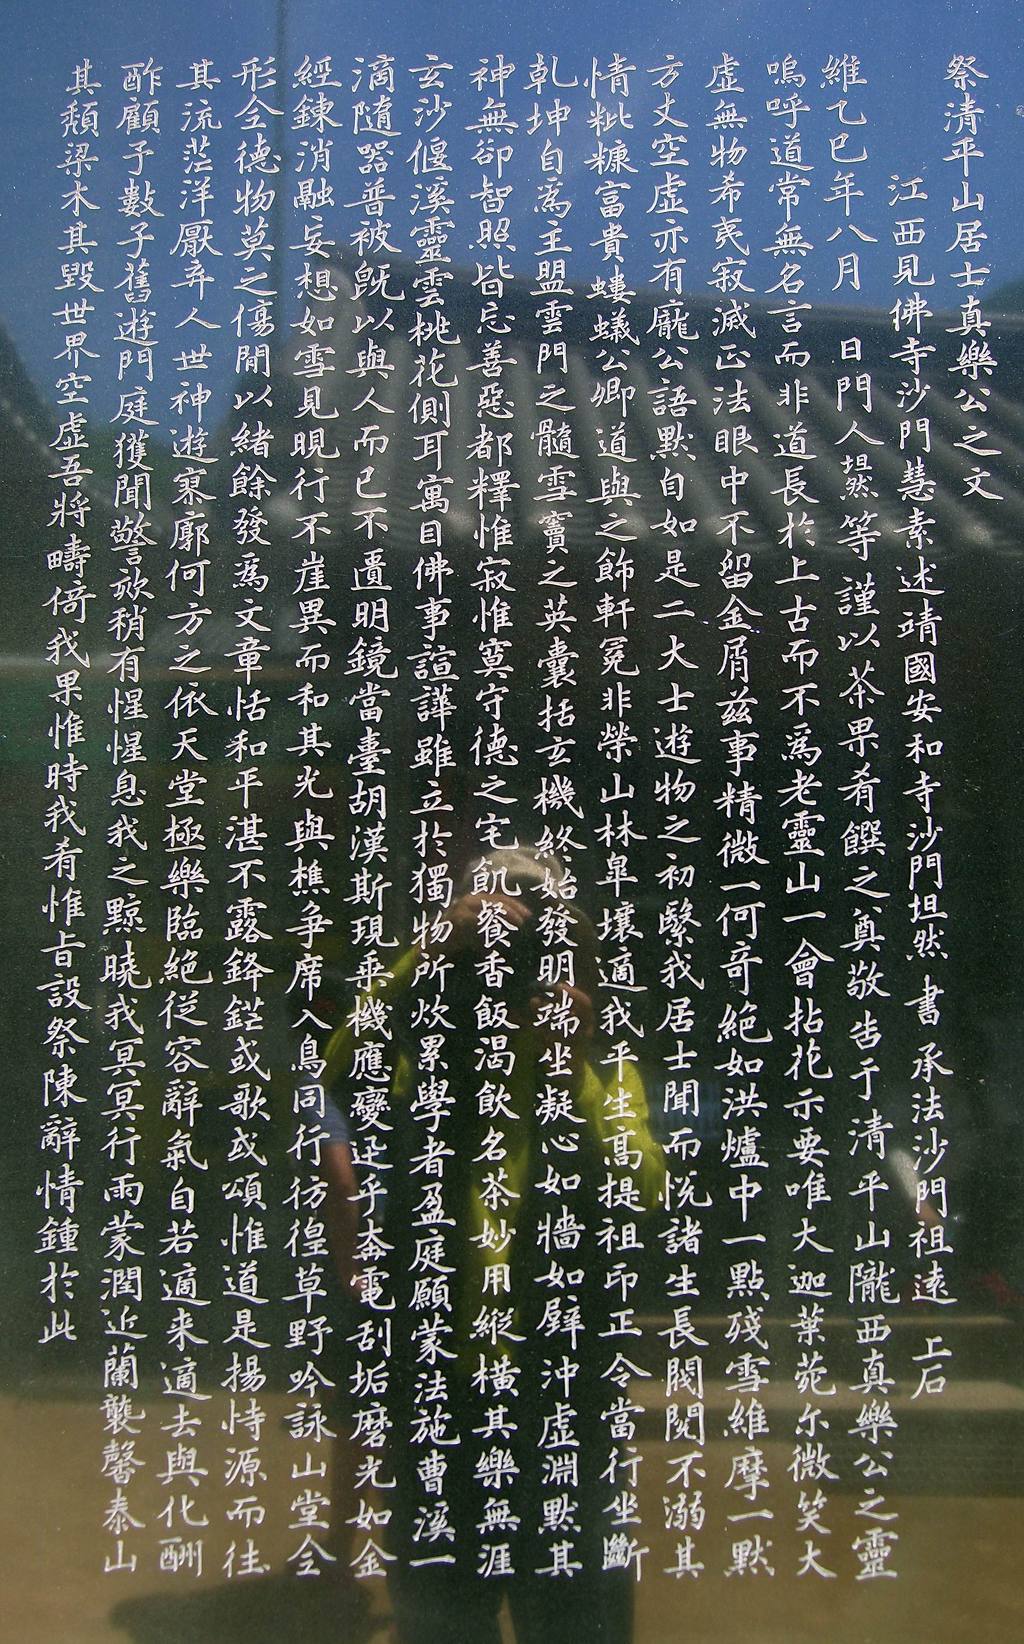 祭清平山居士真樂公之文
江西見佛寺沙門慧素述靖國安和寺沙門坦然書 承法沙門祖遠 上石
維乙巳年八月 日門人坦然等謹以茶果肴饌之奠敬告于清平山隴西真樂公之靈
嗚呼道常無名言而非道長於上古而不爲老靈山一會拈花示要唯大迦葉苑尓微笑大
虛無物希夷寂滅正法眼中不留金屑兹事精微一何奇絶如洪爐中一點殘雪維摩一默
方丈空虛亦有龐公語默自如是二大士遊物之初繄我居士聞而悅諸生長閥閱不溺其
情粃糠富貴螻蟻公卿道與之飾軒冕非榮山林皐壤適我平生高提祖印正令當行坐斷
乹坤自爲主盟雲門之髓雪竇之英囊括玄機終始發明端坐凝心如墻如壁沖虛淵默其
神無卻智照皆忘善惡都釋惟寂惟寞守德之宅飢餐香飯渴飲名茶妙用縱橫其樂無涯
玄沙偃溪靈雲桃花側耳寓目佛事諠譁雖立於獨物所炊累學者盈庭願蒙法施曹溪一
滴隨器普被旣以與人而已不遺明鏡當臺胡漢斯現乘機應變迅乎奔電刮垢磨光如金
經鍊消融妄想如雪見晛行不崖異而和其光與樵争席入鳥同行彷徨草野吟詠山堂全
形全德物莫之傷閒以緒餘發爲文章恬和平湛不露鋒鋩或歌或頌惟道是揚恃源而往
其流茫洋厭弃人世神遊寥廓何方之依天堂極樂臨絶從容辭氣自若適来適去與化酬
酢顧予數子舊遊門庭獲聞謦欬稍有惺惺息我之黥曉我冥冥行雨蒙潤近蘭襲馨泰山
其頹梁木其毀世界空虛吾將疇倚我果惟時我肴惟旨設祭陳辭情鍾於此